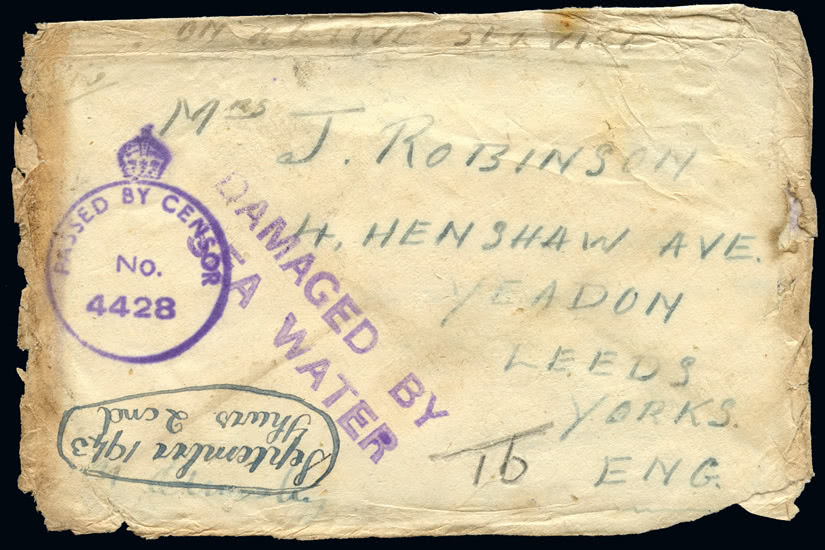 ON ACTIVE SERVICE
Mrs J. ROBINSON
4, HENSHAW AVE.
YEADON
LEEDS
YORKS.
ENG.
PASSED BY CENSOR
No.
4428
DAMAGED BY
SEA WATER
16
Thurs 2cnd
September 1943